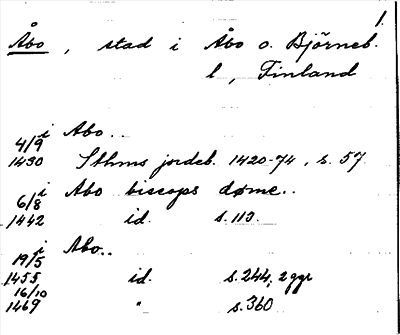 1.
Åbo, stad i Åbo o. Björneb.
l, Finland
4/9 i Abo..
1430 Sthms jordeb. 1420-74, s. 57
6/8 i Abo biscops døme..
1442 id. s. 113.
19/5 i Abo..
1455 id. s. 244, 2 ggr
16/10
1469 " s. 360